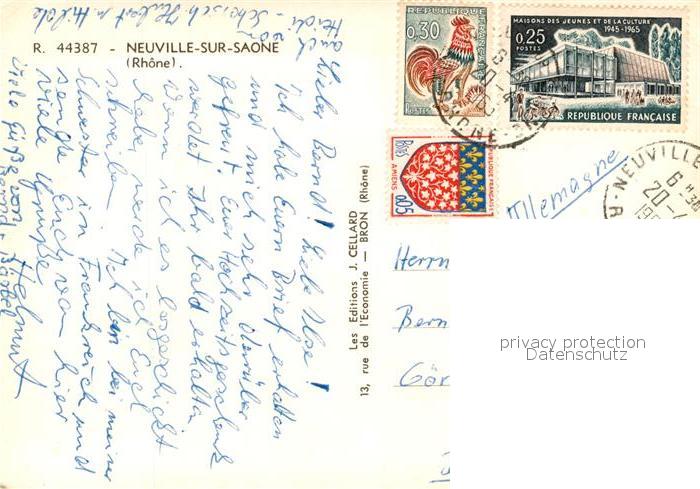 R. 44387 - NEUVILLE-SUR-SAONE
(Rhône).
Lieber Bernd! Liebe Ilse!
Ich habe Euern Brief erhalten
und mich sehr darüber
gefreut. Euer Hochzeitsgeschenk
werdet Ihr bald erhalten
wenn ich es losgeschickt
habe, werde ich Euch
schreiben. Ich bin bei meiner
Schwester in Frankreich und
sende Euch von hier
viele Grüße
Helmut
Viele Grüße von
Les Editions J. CELLARD
13, rue de l'Economie — BRON (Rhône)
REPUBLIQUE FRANÇAISE
0,30
POSTES
MAISONS DES JEUNES ET DE LA CULTURE
1945-1965
0,25
POSTES
REPUBLIQUE FRANÇAISE
REPUBLIQUE FRANÇAISE
AMIENS
0,05
NEUVILLE
20
Allemagne
Herrn
Bern
Gör
privacy protection
Datenschutz